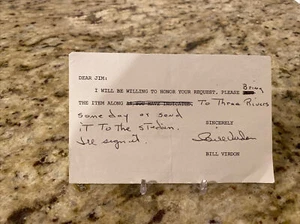 DEAR JIM:
I WILL BE WILLING TO HONOR YOUR REQUEST, PLEASE Bring
THE ITEM ALONG AS YOU HAVE INDICATED. To Three Rivers
some day or send
it To the stadium.
I'll sign it.
SINCERELY
Bill Virdon
BILL VIRDON